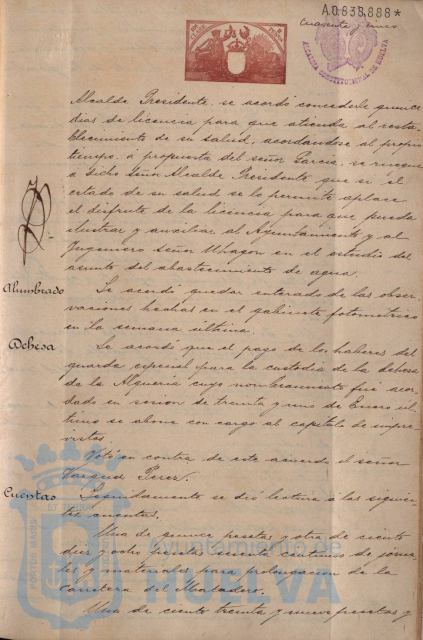 A.0.838.888*
Cuarenta y cinco
ALCALDIA CONSTITUCIONAL DE HUELVA
Alcalde Presidente, se acordó concederle quince
dias de licencia para que atienda al resta-
blecimiento de su salud, acordandose al propio
tiempo, á propuesta del señor Garcia, se ruegue
a dicho Señor Alcalde Presidente que si el
estado de su salud se lo permite aplace
el disfrute de la licencia para que pueda
ilustrar y auxiliar al Ayuntamiento y al
Ingeniero Señor Uhagon en el estudio del
asunto del abastecimiento de agua.
Alumbrado
Se acordó quedar enterado de las obser-
vaciones hechas en el gabinete fotometrico
en la semana última.
Dehesa
Se acordó que el pago de los haberes del
guarda especial para la custodia de la dehesa
de la Alqueria cuyo nombramiento fué acor-
dado en sesion de treinta y uno de Enero úl-
timo se abone con cargo al capitulo de impre-
vistos.
Votó en contra de este acuerdo el señor
Vazquez Perez.
Cuentas
Seguidamente se dió lectura á las siguien-
tes cuentas.
Una de quince pesetas y otra de ciento
diez y ocho pesetas setenta centimos de jorna-
les y materiales para prolongacion de la
carretera del Matadero.
Una de ciento treinta y nueve pesetas y
Ayuntamiento de
HUELVA